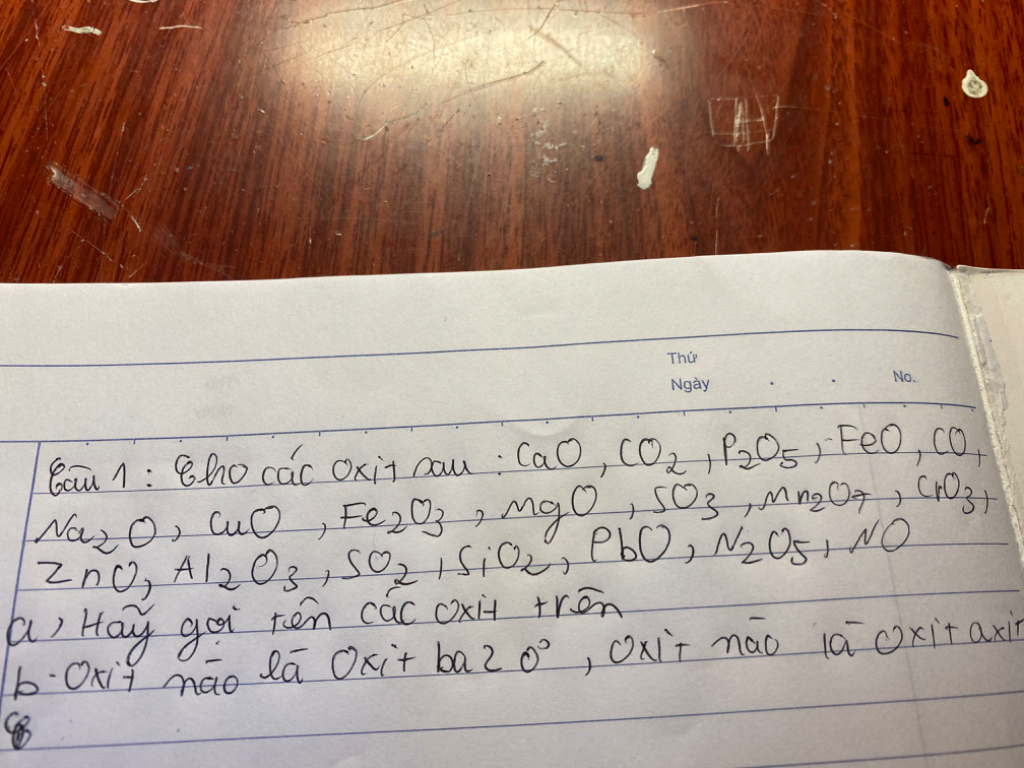 Thứ
Ngày . . No.
Câu 1 : Cho các oxit sau : CaO, CO₂, P₂O₅, FeO, CO,
Na₂O, CuO, Fe₂O₃, MgO, SO₃, Mn₂O₇, CrO₃,
ZnO, Al₂O₃, SO₂, SiO₂, PbO, N₂O₅, NO
a, Hãy gọi tên các oxit trên
b. Oxit nào là Oxit bazơ, Oxit nào là Oxit axit